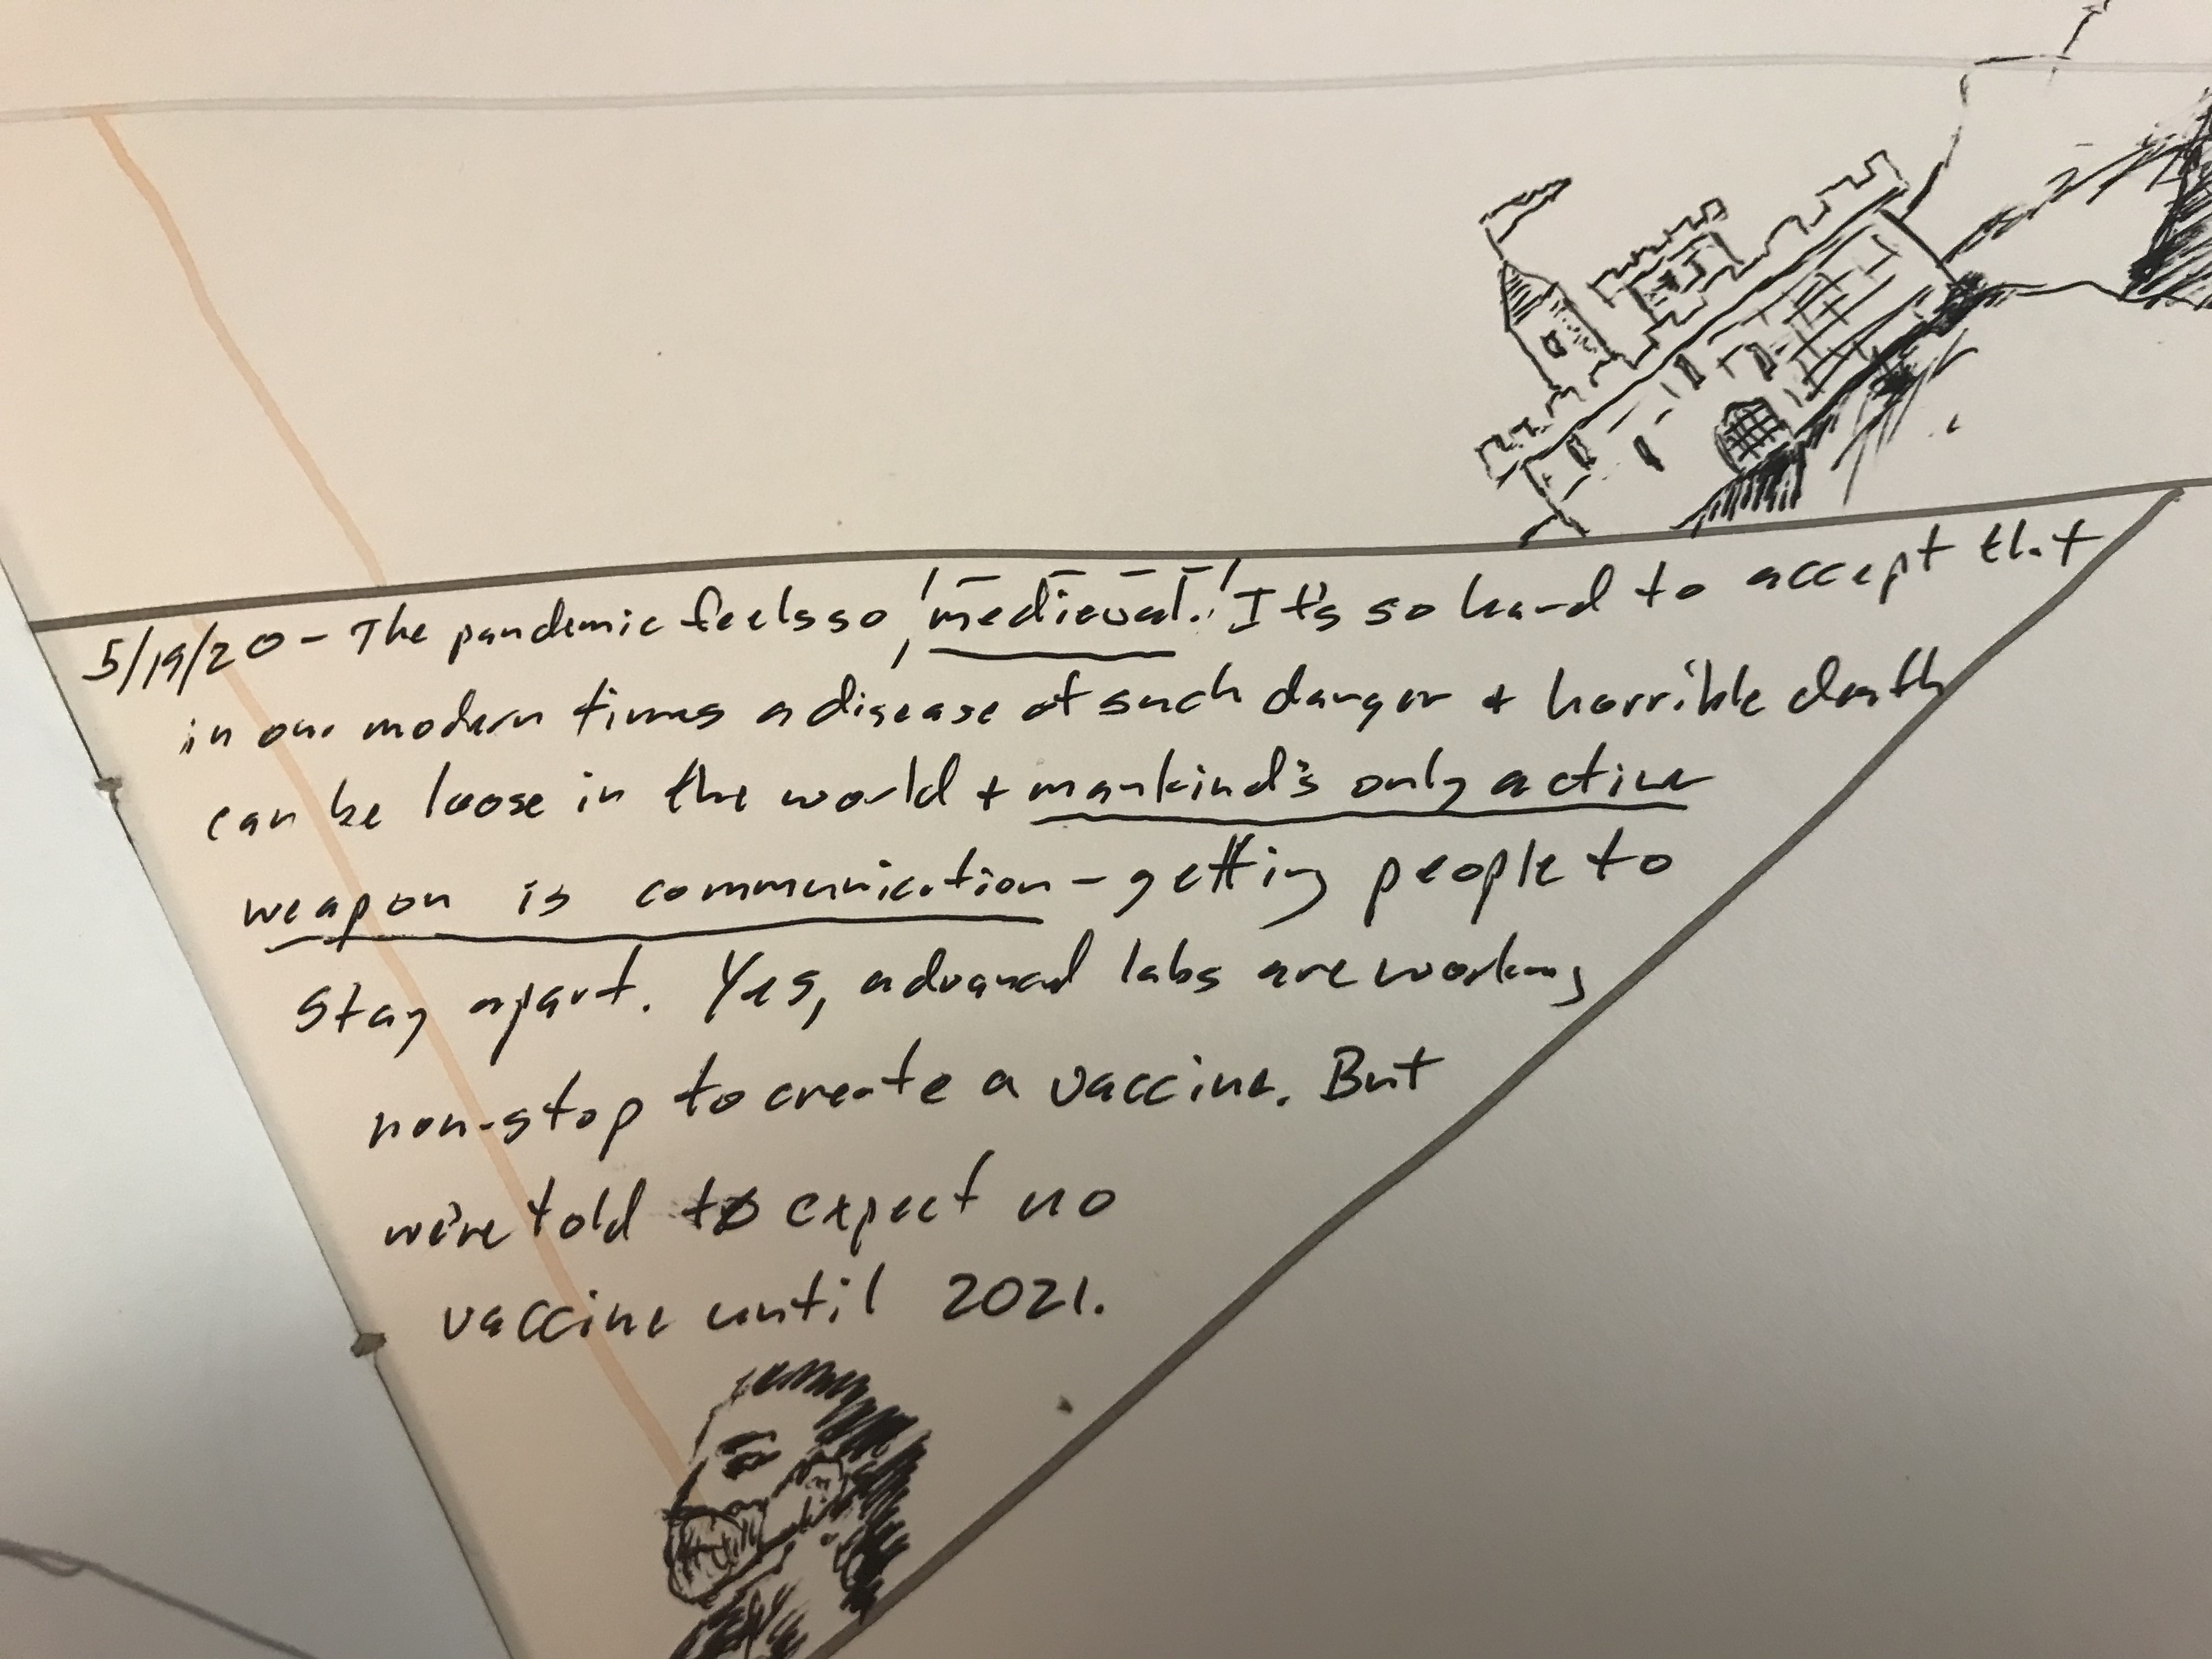 5/19/20 - The pandemic feels so medieval. It's so hard to accept that
in our modern times a disease of such danger + horrible death
can be loose in the world + mankind's only active
weapon is communication - getting people to
stay apart. Yes, advanced labs are working
non-stop to create a vaccine. But
we're told to expect no
vaccine until 2021.